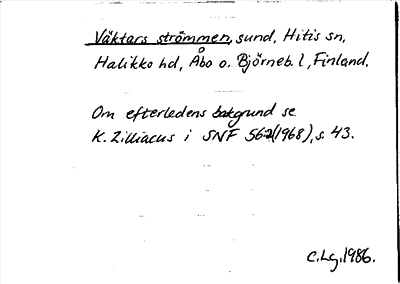 Väktars strömmen, sund, Hitis sn,
Halikko hd, Åbo o. Björneb. l, Finland.
Om efterledens bakgrund se
K. Zilliacus i SNF 56:2(1968), s. 43.
C.Lg. 1986.